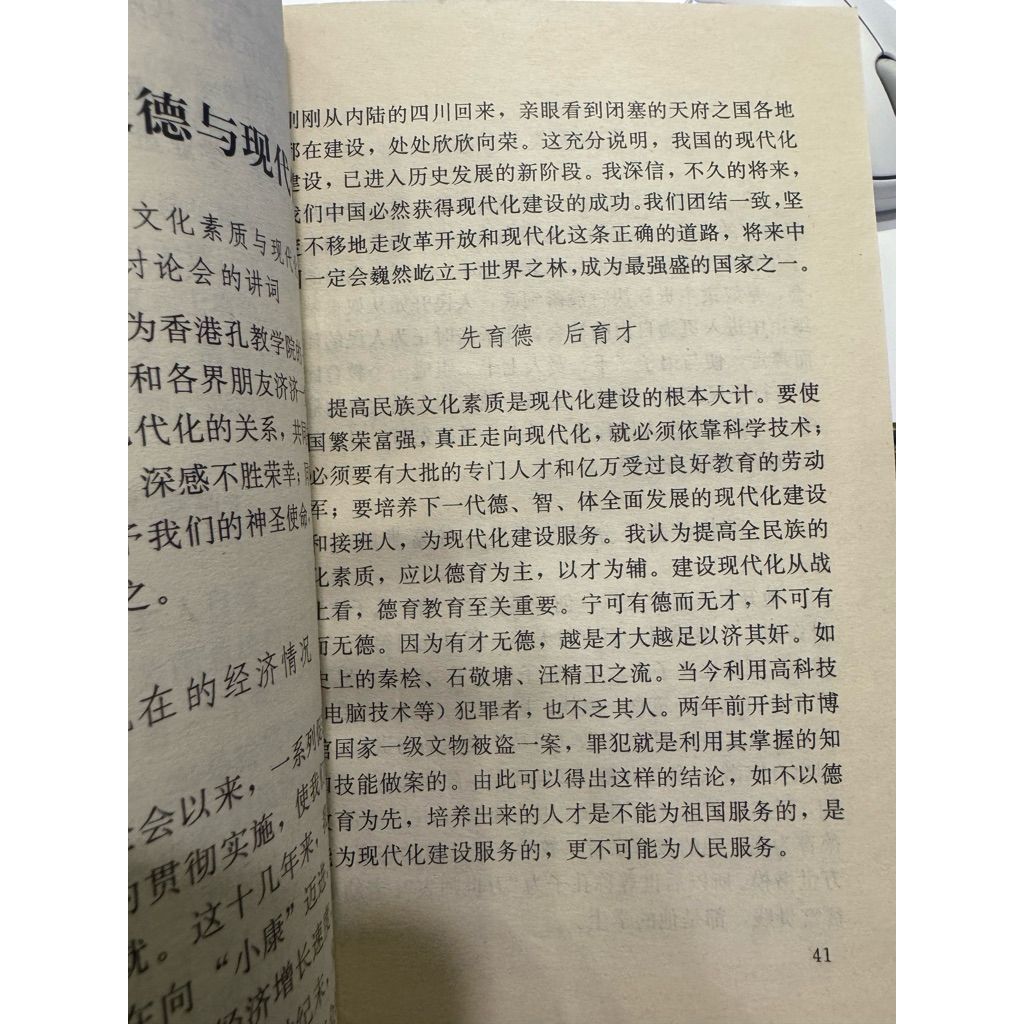 德与现代
文化素质与现代
讨论会的讲词
为香港孔教学院的
和各界朋友济济一
代化的关系,共同
深感不胜荣幸;
予我们的神圣使命
之。
在的经济情况
会以来,一系列
贯彻实施,使我
这十几年来,
“小康”迈进
经济增长速度
刚从内陆的四川回来,亲眼看到闭塞的天府之国各地
在建设,处处欣欣向荣。这充分说明,我国的现代化
建设,已进入历史发展的新阶段。我深信,不久的将来,
我们中国必然获得现代化建设的成功。我们团结一致,坚
不移地走改革开放和现代化这条正确的道路,将来中
一定会巍然屹立于世界之林,成为最强盛的国家之一。
先育德 后育才
提高民族文化素质是现代化建设的根本大计。要使
国繁荣富强,真正走向现代化,就必须依靠科学技术;
必须要有大批的专门人才和亿万受过良好教育的劳动
军;要培养下一代德、智、体全面发展的现代化建设
和接班人,为现代化建设服务。我认为提高全民族的
化素质,应以德育为主,以才为辅。建设现代化从战
上看,德育教育至关重要。宁可有德而无才,不可有
而无德。因为有才无德,越是才大越足以济其奸。如
史上的秦桧、石敬塘、汪精卫之流。当今利用高科技
电脑技术等)犯罪者,也不乏其人。两年前开封市博
国家一级文物被盗一案,罪犯就是利用其掌握的知
技能做案的。由此可以得出这样的结论,如不以德
教育为先,培养出来的人才是不能为祖国服务的,是
为现代化建设服务的,更不可能为人民服务。
41